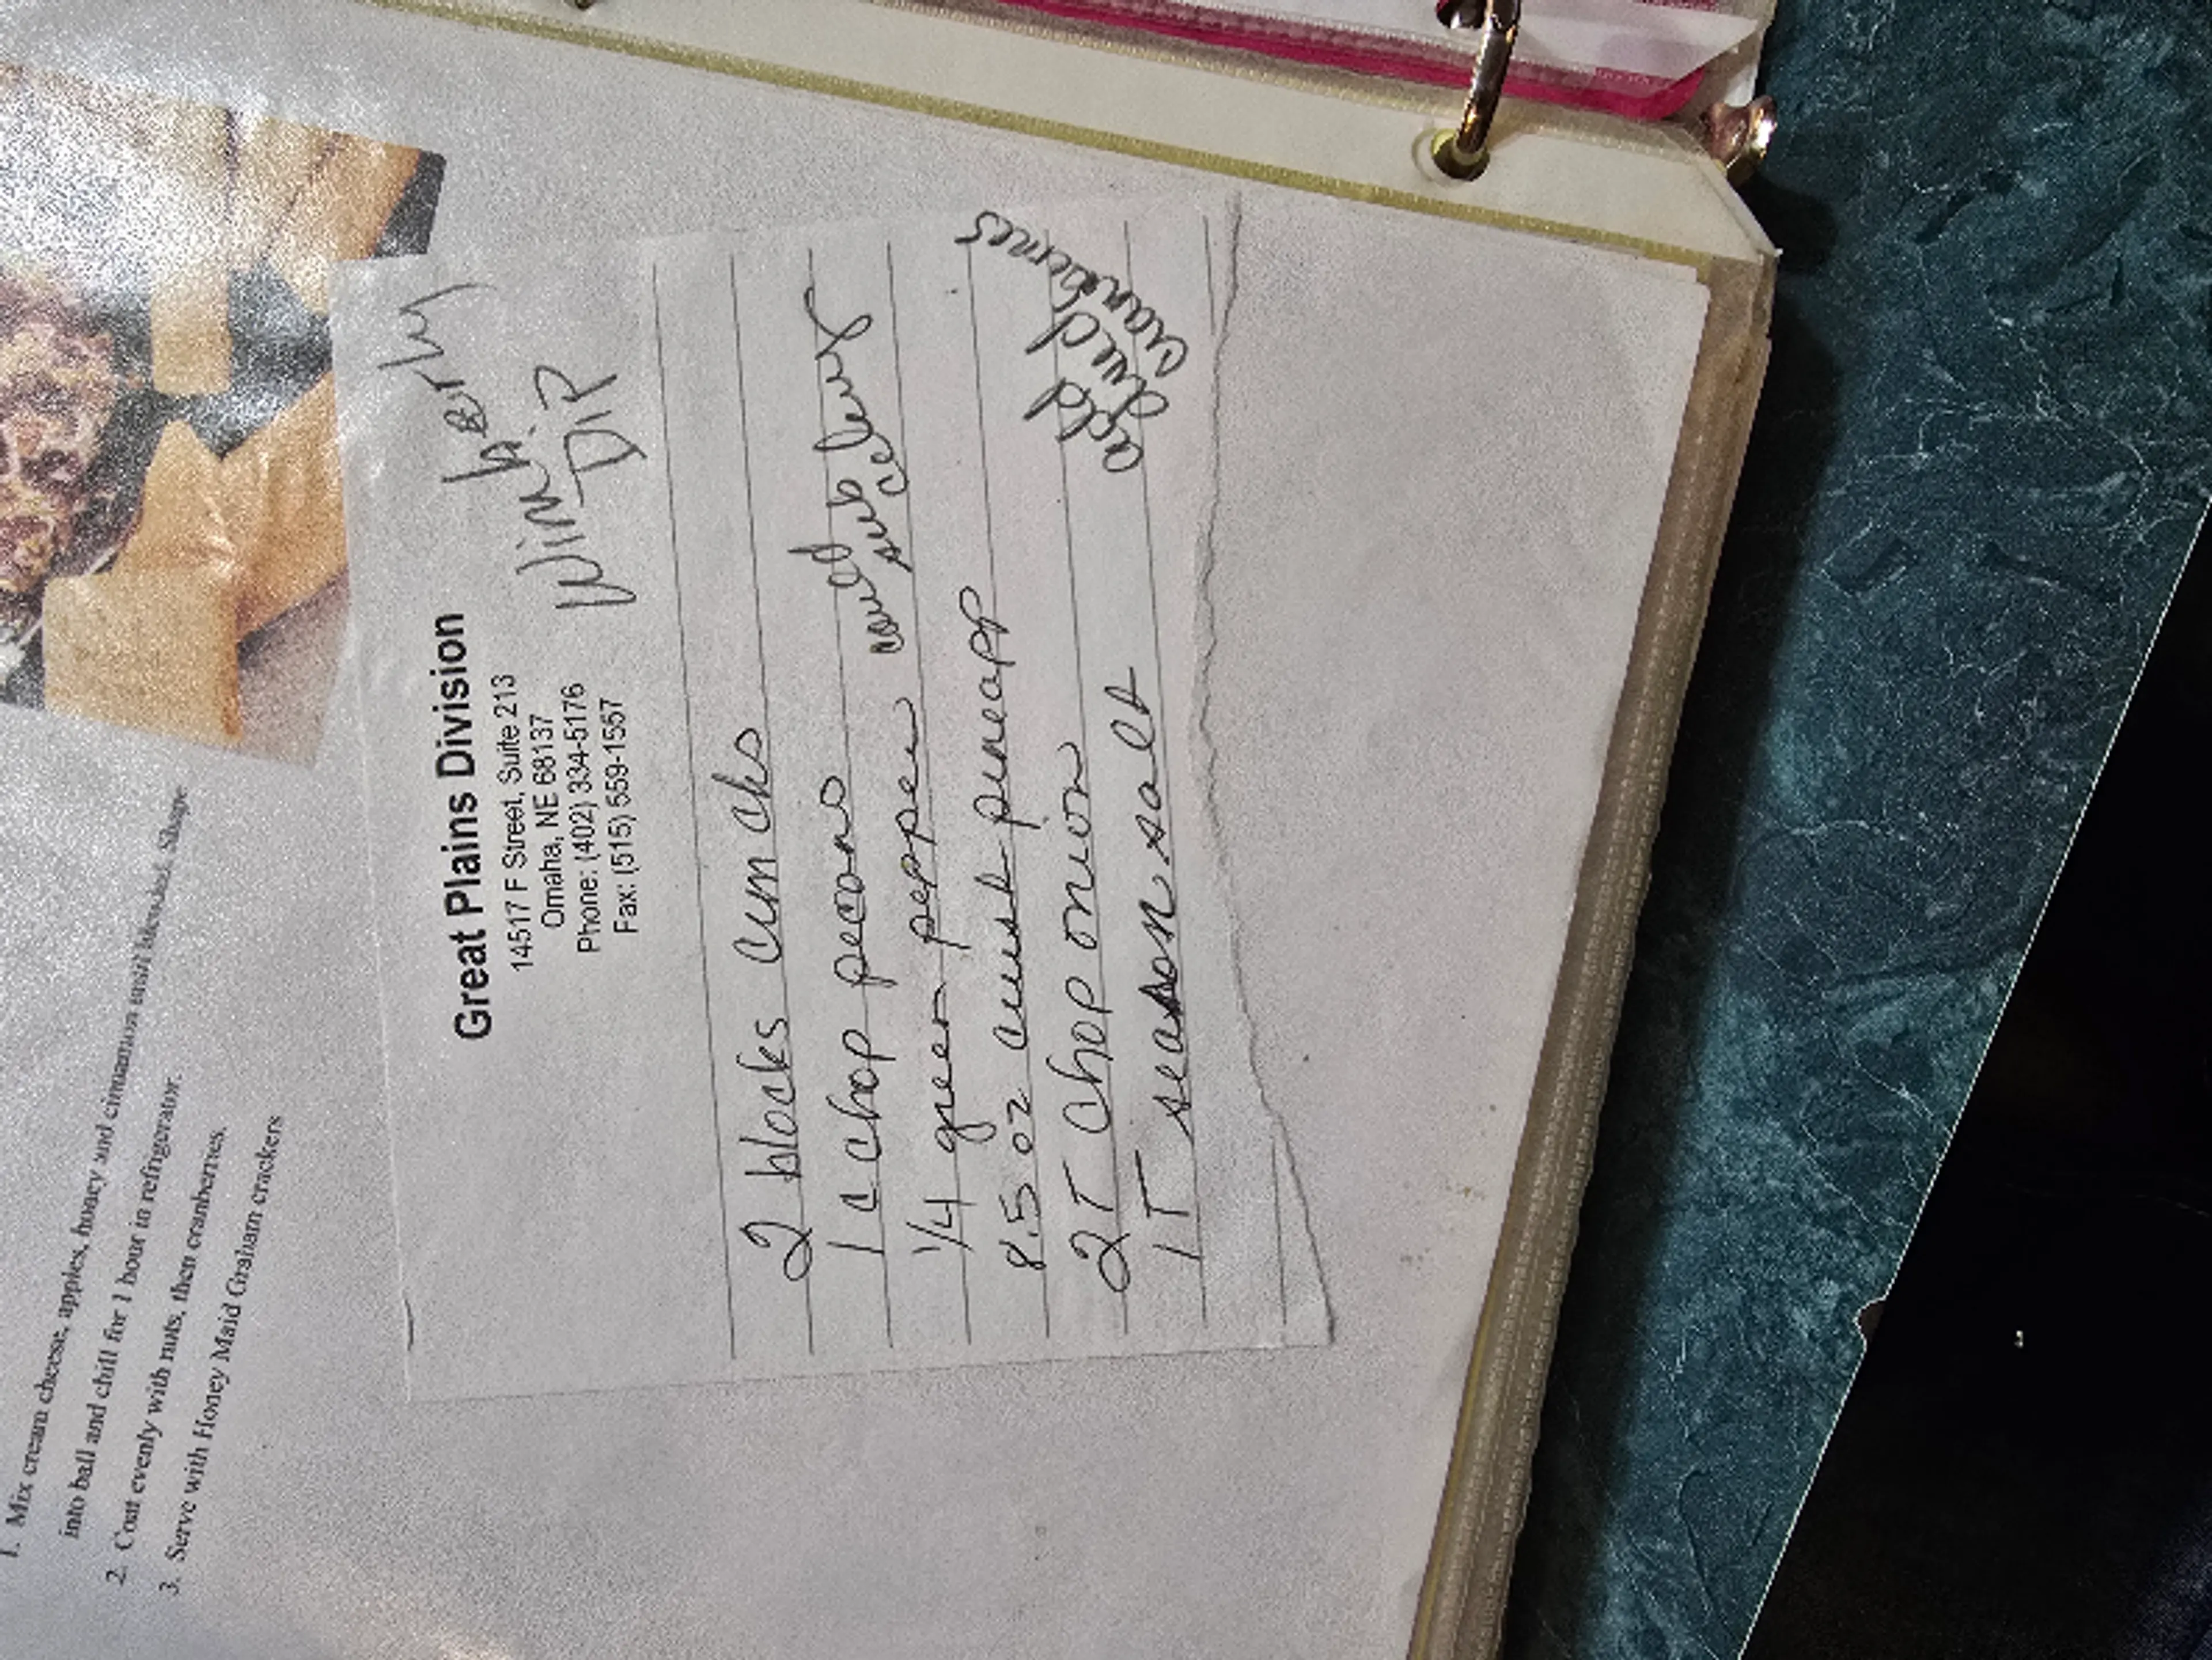 1. Mix cream cheese, apples, honey and cinnamon until blended. Shape
into ball and chill for 1 hour in refrigerator.
2. Coat evenly with nuts, then cranberries.
3. Serve with Honey Maid Graham crackers
Great Plains Division
14517 F Street, Suite 213
Omaha, NE 68137
Phone: (402) 334-5176
Fax: (515) 559-1557
Wimberly
DIP
2 blocks crm chs
1 c chop pecans
could sub celery
1/4 green pepper
8.5 oz crush pineapp
2T chop onion
1T season salt
add dried
cranberries